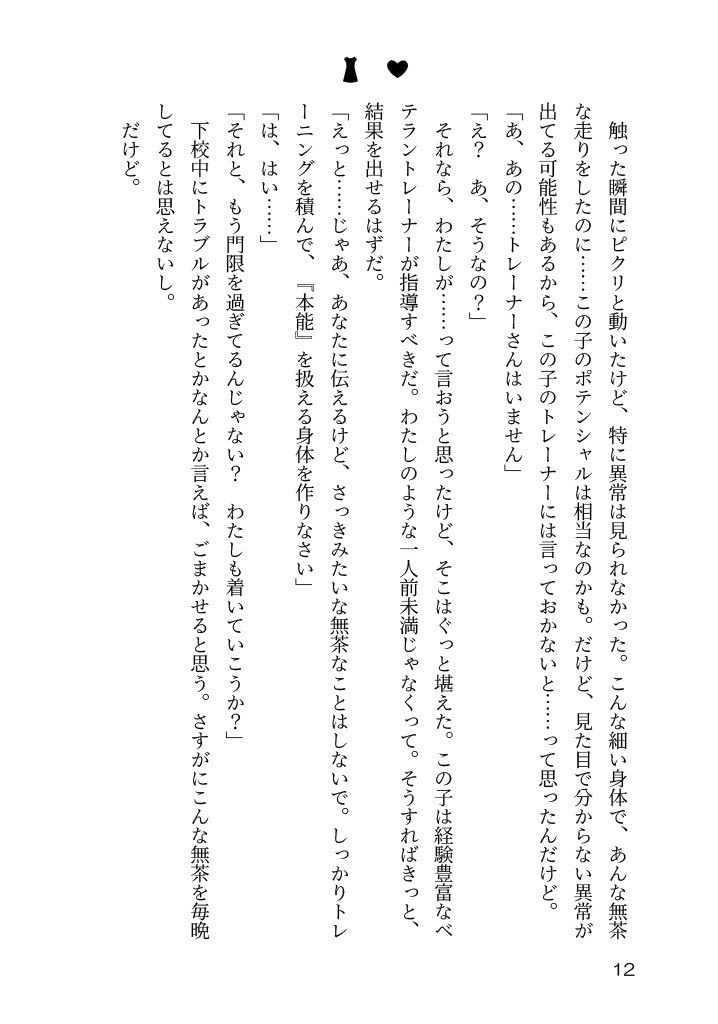 触った瞬間にピクリと動いたけど、特に異常は見られなかった。こんな細い身体で、あんな無茶
な走りをしたのに……この子のポテンシャルは相当なのかも。だけど、見た目で分からない異常が
出てる可能性もあるから、この子のトレーナーには言っておかないと……って思ったんだけど。
「あ、あの……トレーナーさんはいません」
「え？　あ、そうなの？」
　それなら、わたしが……って言おうと思ったけど、そこはぐっと堪えた。この子は経験豊富なベ
テラントレーナーが指導すべきだ。わたしのような一人前未満じゃなくって。そうすればきっと、
結果を出せるはずだ。
「えっと……じゃあ、あなたに伝えるけど、さっきみたいな無茶なことはしないで。しっかりトレ
ーニングを積んで、『本能』を扱える身体を作りなさい」
「は、はい……」
「それと、もう門限を過ぎてるんじゃない？　わたしも着いていこうか？」
　下校中にトラブルがあったとかなんとか言えば、ごまかせると思う。さすがにこんな無茶を毎晩
してるとは思えないし。
　だけど。
12